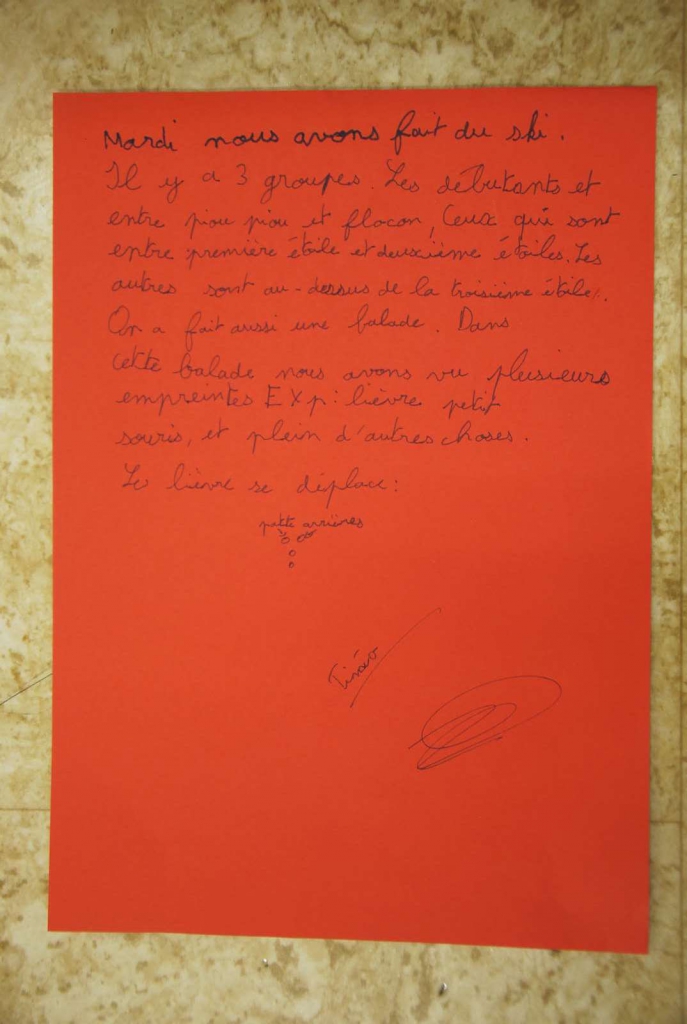 Mardi nous avons fait du ski.
Il y a 3 groupes. Les débutants et
entre piou piou et flocon, Ceux qui sont
entre première étoile et deuxième étoiles. Les
autres sont au-dessus de la troisième étoile.
On a fait aussi une balade. Dans
cette balade nous avons vu plusieurs
empreintes EXp: lièvre petit
souris, et plein d'autres choses.
Le lièvre se déplace:
patte arrières